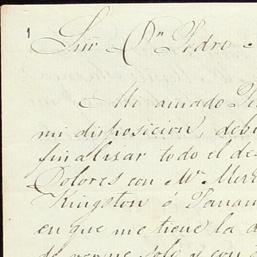 1
Sñr Dn Pedro
Mi amado
mi disposicion, debi
finalisar todo el de
Dolores con Mr
Kingston ó Panam
en que me tiene la a
de verme solo y con